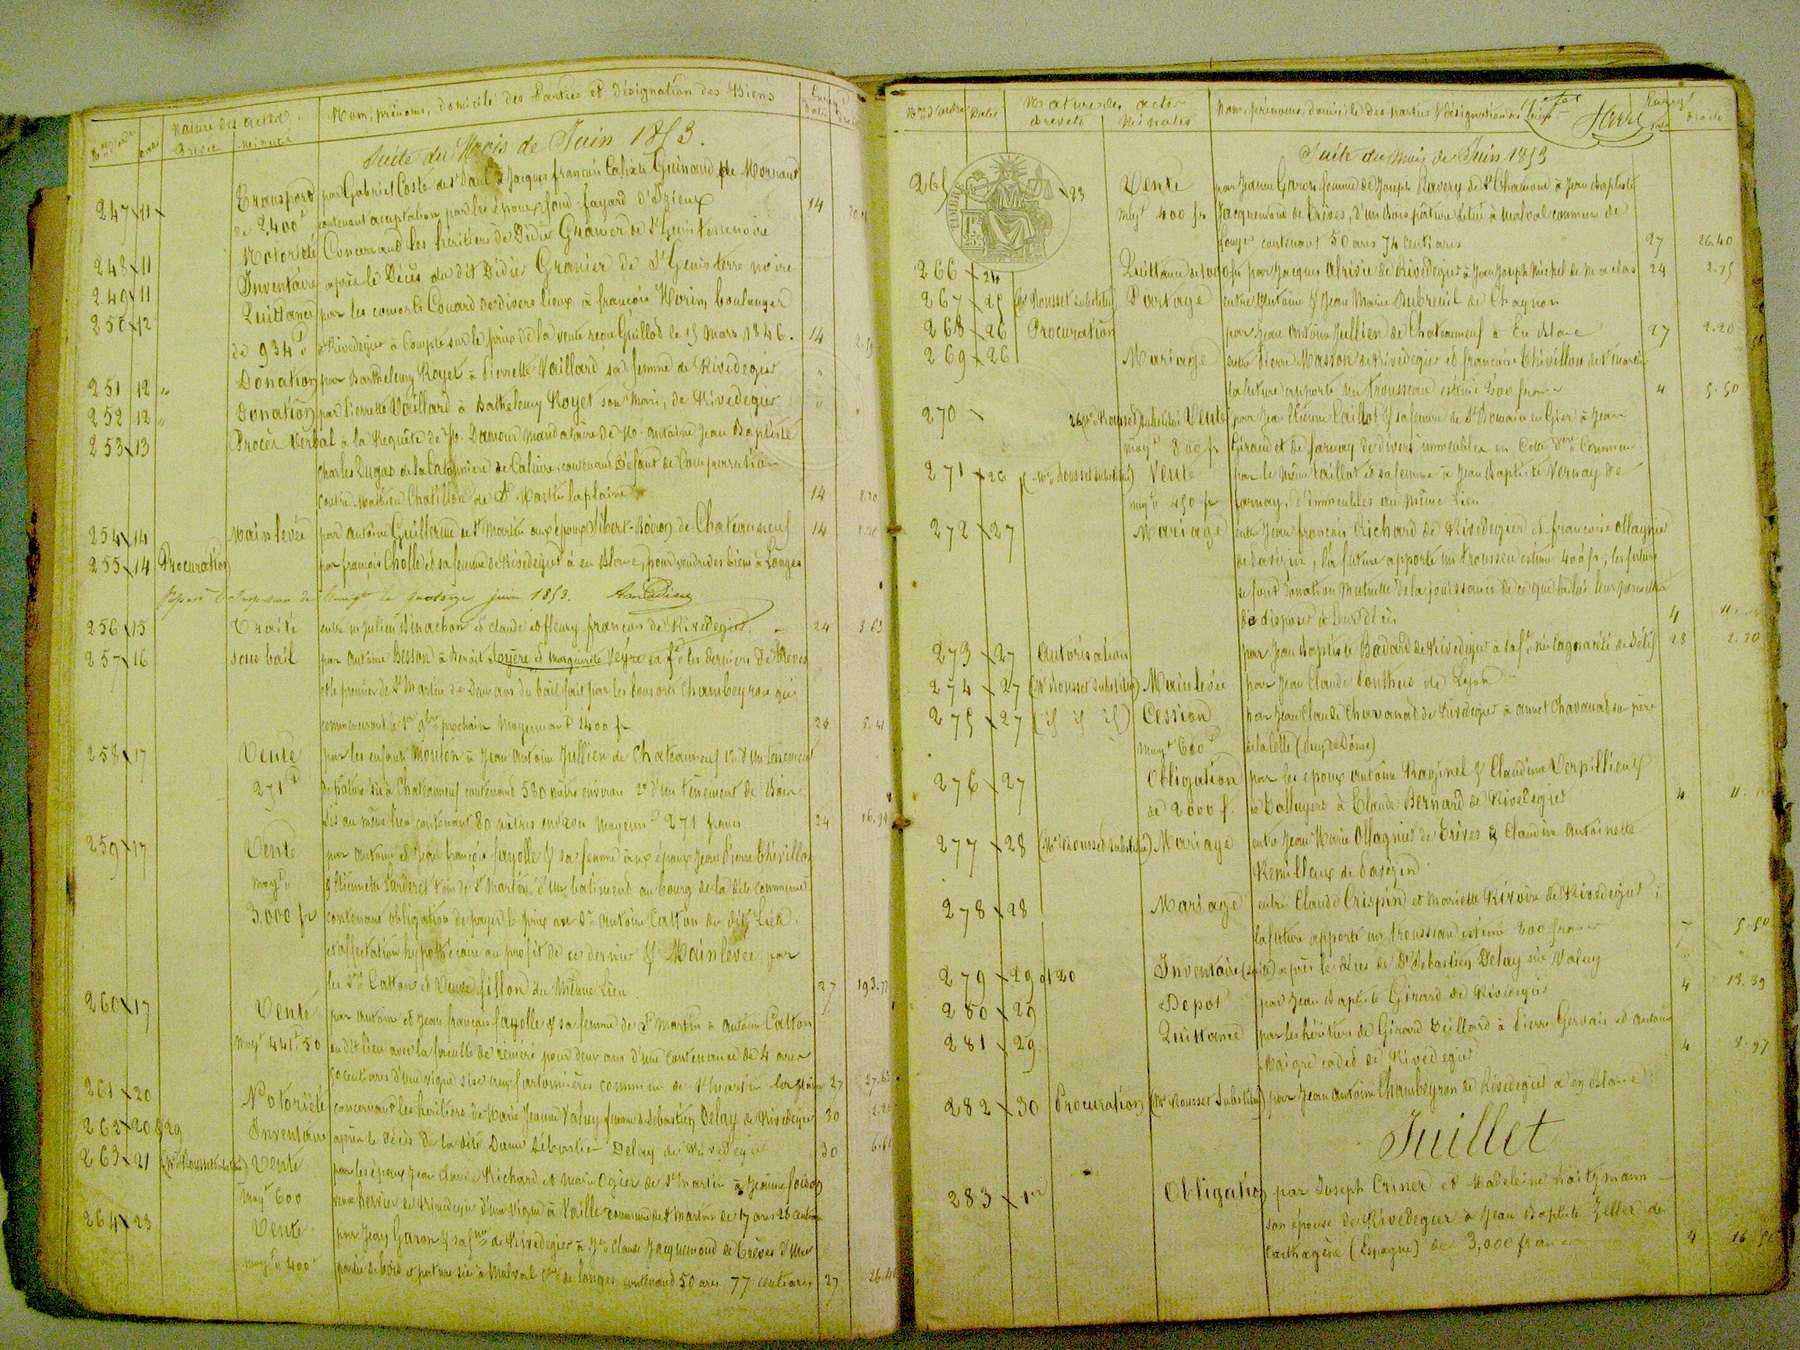 Nom, prénoms, domicile des Parties et Désignation des Biens
Nature des actes
Brevets Minutes
Suite du Mois de Juin 1853.
247 11 Transport par Gabriel Coste de St Paul à Jacques françois Calixte Guinard de Mornant
de 2,400 f contenant acceptation par les époux fond-fayard d'Izieux 14
248 11 Notoriété Concernant les héritiers de Didier Granier de St Genis terre noire
249 11 Inventaire après le Décès du dit Didier Granier de St Genis terre noire
250 12 Quittance par les consorts Couard de divers lieux à françois Morin, boulanger
de 934 f à Rivedegier à Compte sur le prix de la vente reçue Guillot le 15 Mars 1846. 14
251 12 Donation par Barthelemy Royet à Pierrette Vaillard sa femme de Rivedegier
252 12 Donation par Pierrette Vaillard à Barthelemy Royet son Mari, de Rivedegier
253 13 Procès Verbal à la Requête de M. Damour Mandataire de M. Antoine Jean Baptiste
Charles Dugas de la Catonnière de Caluire contenant Défaut de Comparution
contre Mathieu Chatillon de St Martin laplaine 14
254 14 Mainlevée par Antoine Guillaume de St Martin aux époux Gibert-Boiron de Chateauneuf 14
255 14 Procuration par françois Cholle et sa femme de Rivedegier à en Blanc, pour vendre des biens à Longes
le quatorze juin 1853.
256 15 Traité entre M Julien Pinachon et Claude et fleury françois de Rivedegier 24 3.63
257 16 Sous bail par Antoine Besson à Benoit Loyère et Marguerite Veyre sa fe les derniers de Trèves
et le premier de St Martin de Deux ans du bail fait par les Consorts Chambeyron qui
commenceront le 1er 9bre prochain Moyennant 1400 fr 24
258 17 Vente par les enfants Mouton à Jean Antoine Jullien de Chateauneuf 1° d'un tènement
271 f de pature sis à Chateauneuf contenant 530 mètres environ 2° d'un tènement de Bois
sis au même lieu contenant 80 mètres environ Moyennt 271 francs 24 16.94
259 17 Vente par Antoine et Jean françois fayolle & sa femme aux époux Jean Pierre Thévillon
moyt & Etiennette Larderet de St Martin d'un batiment au bourg de la dite commune
3,000 fr contenant obligation de payer le prix au Sr Antoine Catton du dit Lieu
et affectation hypothécaire au profit de ce dernier & Mainlevée par
les Srs Catton et Veuve fillon du Même Lieu 27 193.
260 17 Vente par Antoine et Jean françois fayolle & sa femme de St Martin à Antoine Catton
moyt 441 f 50 du dit lieu avec la faculté de réméré pour deux ans d'une contenance de 4 ares
50 centiares d'une vigne sise aux cartonnières commune de St Martin laplaine 27
261 20 Notoriété concernant les héritiers de Marie Jeanne Valuy femme de Sébastien Delay de Rivedegier 30
262 20 & 29 Inventaire après le décès de la dite Dame Sébastien Delay de Rivedegier 30
263 21 (Me Rousset substitué) Vente par les époux Jean Claude Richard et Marie Ogier de St Martin à Jeanne
moyt 600 veuve de Rivedegier d'une vigne à Vaille commune de St Martin de 17 ares 20 centiares
264 23 Vente par Jean Garon & sa fme de Rivedegier à Jn Claude Jacquemond de Trèves d'une
moyt 400 f partie de bois et pature sise à Malval cne de Longes contenant 50 ares 77 centiares 27 26.40
Nos d'ordre Dates Nature des actes Nom, prénoms, domicile des parties & désignation des biens
Brevets Minutes
Suite du Mois de Juin 1853
TIMBRE
265 23 Vente par Jeanne Garon femme de Joseph Ravery de St Chamond à Jean Baptiste
moyt 400 fr Jacquemond de Trèves, d'un bois pâture situé à Malval commune de
Longes contenant 50 ares 74 centiares 27 26.40
266 24 Quittance de 1000 fr par Jacques Olrivie de Rivedegier à Jean Joseph Michel de Maclas 24 2.75
267 25 (Me Rousset substitué) Partage entre Antoine & Jean Marie Dubreuil de Chagnon
268 26 Procuration par Jean Antoine Jullien de Chateauneuf à En Blanc 27 2.20
269 26 Mariage entre Pierre Masson de Rivedegier et françoise Thévillon de St Martin
la future apporte un trousseau estimé 200 francs 4 5.50
270 26 (Me Rousset substitué) Vente par Jean Etienne Caillot & sa femme de St Romain en Gier à Jean
moyt 800 fr Giraud et de farnay de divers immeubles en Cette dre Commune
271 26 (Me Rousset substitué) Vente par le Même Caillot et sa femme à Jean Baptiste Vernay de
moyt 450 fr farnay, d'immeubles au Même Lieu
272 27 Mariage entre Jean françois Richard de Rivedegier et françoise Ollagnier
de Pavézin, la future apporte un trousseau estimé 400 fr, les futurs
se font donation Mutuelle de la jouissance de ce que la loi leur permettra
de disposer à leur décès 4 11
273 27 Autorisation par Jean Baptiste Badard de Rivedegier à sa fe née Lagnarité de Sétif 28 2.20
274 27 (Me Rousset substitué) Mainlevée par Jean Claude Ponthus de Lyon
275 27 (id id id) Cession par Jean Claude Chavanat de Rivedegier à Annet Chavanat son père
moyt 600 f de la Celle (Puy de Dôme)
276 27 Obligation par les époux Antoine Raginel & Claudine Verpillieux
de 2000 f. à Dalluyers à Claude Bernard de Rivedegier 4 11
277 28 (Me Rousset substitué) Mariage entre Jean Marie Ollagnier de Trèves & Claudine Antoinette
Remilleux de Pavézin
278 28 Mariage entre Claude Crispin et Mariette Rivoire de Rivedegier;
la future apporte un trousseau estimé 200 francs 5.50
279 29 et 20 Inventaire (suite) après le décès de De Sébastien Delay née Valuy
280 29 Dépôt par Jean Baptiste Girard de Rivedegier 4 13.39
281 29 Quittance par les héritiers de Girard Peillard à Pierre Gervais et Antoine
Maigre cadet de Rivedegier 4 8.97
282 30 Procuration (Me Rousset Substitué) par Jean Antoine Chambeyron de Rivedegier à en Blanc
Juillet
283 1er Obligation par Joseph Criner et Madeleine haitzmann
son épouse de Rivedegier à Jean Baptiste Zeller de
Carthagène (Espagne) de 3,000 francs 4 16.50